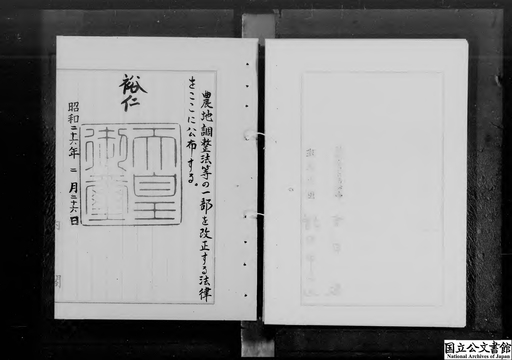 農地調整法等の一部を改正する法律
をここに公布する。
裕仁
天皇
御璽
昭和二十六年二月二十六日
国立公文書館
National Archives of Japan